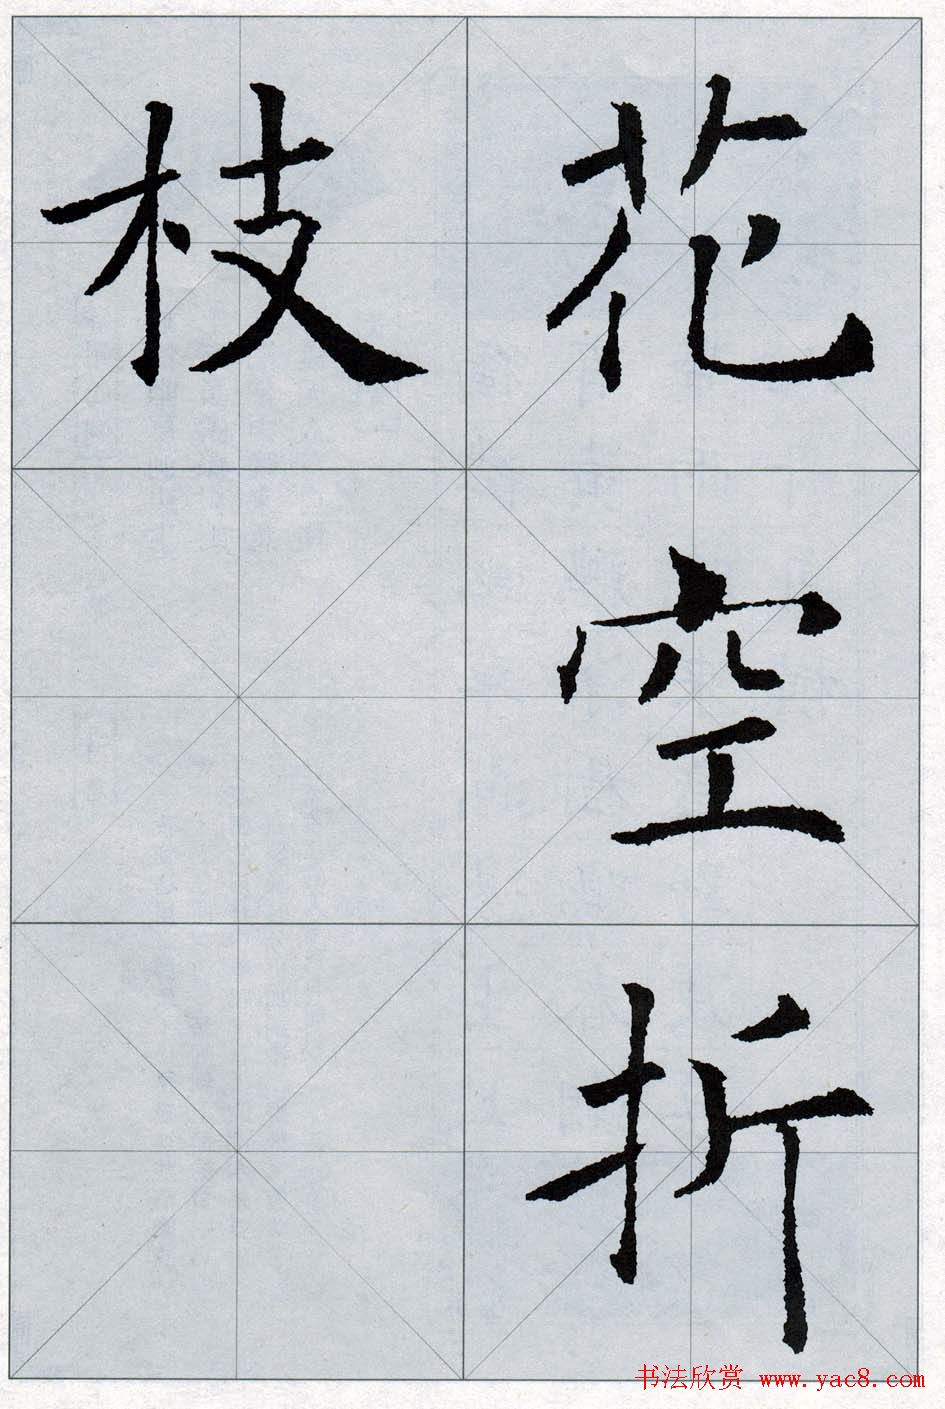 花空折
枝
书法欣赏 www.yac8.com